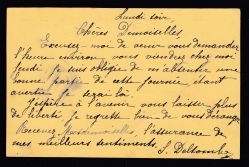 Lundi soir
Chères Demoiselles
Excusez-moi de venir vous demander
l'heure environ vous viendrez chez moi
jeudi je suis obligée de m'absenter une
bonne partie de cette journée étant
avertie je serai là.
J'espère à l'avenir vous laisser plus
de liberté, je regrette bien de vous déranger
Recevez Mesdemoiselles, l'assurance de
mes meilleurs sentiments